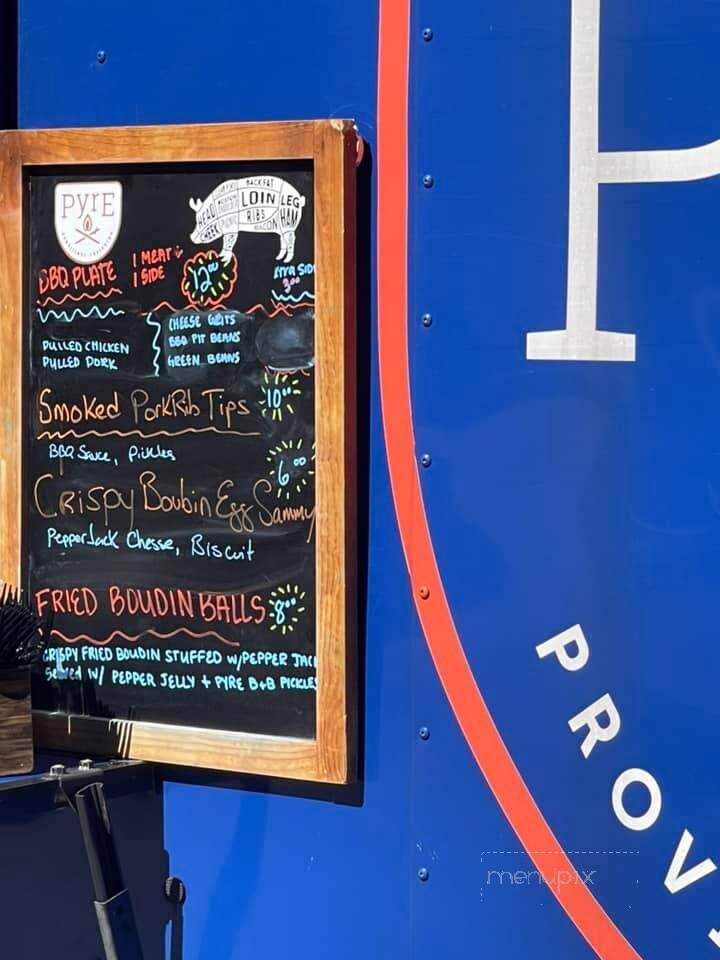 PyrE
BACK FAT
HEAD
LOIN
LEG
RIBS
HAM
CHEEK
PICNIC
BACON
BBQ PLATE
1 MEAT
1 SIDE
12.00
EXTRA SIDE
3.00
PULLED CHICKEN
PULLED PORK
CHEESE GRITS
BBQ PIT BEANS
GREEN BEANS
Smoked Pork Rib Tips
10.00
BBQ Sauce, Pickles
6.00
Crispy Boubin Egg Sammy
PepperJack Chesse, Biscuit
FRIED BOUDIN BALLS
8.00
CRISPY FRIED BOUDIN STUFFED W/PEPPER JACK
Served W/ PEPPER JELLY + PYRE B+B PICKLES
P
PROV
menupix